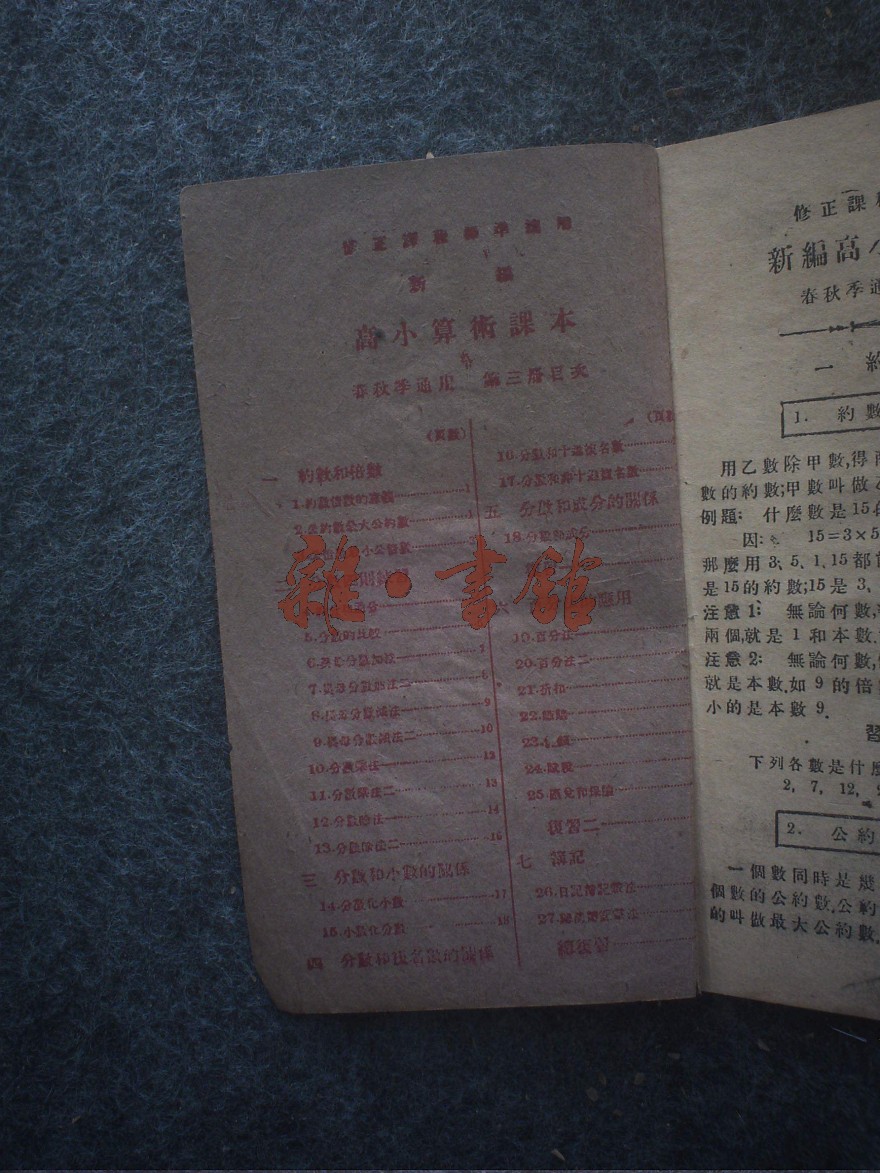 修正課程標準適用
新編
高小算術課本
春秋季通用 第三册目次
(頁數)
一 約數和倍數
1.約數倍數的意義 1
2.公約數最大公約數 1
小公倍數 3
5.分數的比較
6.異母分數加法 7
7.異母分數加法二 8
8.異母分數減法 9
9.異母分數減法二 10
10.分數乘法 12
11.分數乘法二 13
12.分數除法 14
13.分數除法二 16
三 分數和小數的關係
14.分數化小數 17
15.小數化分數 18
四 分數和複名數的關係
(頁數
16.分數和十進複名數
17.分數和非十進複名數
五 分數和成分的關係
18.分數和成分
六 應用
19.百分法一
20.百分法二
21.折扣
22.賺賠
23.
24.賦稅
25.匯兌和保險
複習二
七 簿記
26.日記簿記帳法
27.
總複習
雜·書館
修正課
新編高小
春秋季通
一 約
1. 約數
用乙數除甲數,得
數的約數;甲數叫做
例題: 什麼數是15的
因: 15=3×5
那麼用3、5、1、15都
是15的約數;15是3、
注意1: 無論何數,
兩個,就是1和本數.
注意2: 無論何數,
就是本數.如9的倍
小的是本數9.
習
下列各數是什麼
2, 7, 12,
2. 公約
一個數同時是幾
個數的公約數.公約
的叫做最大公約數.